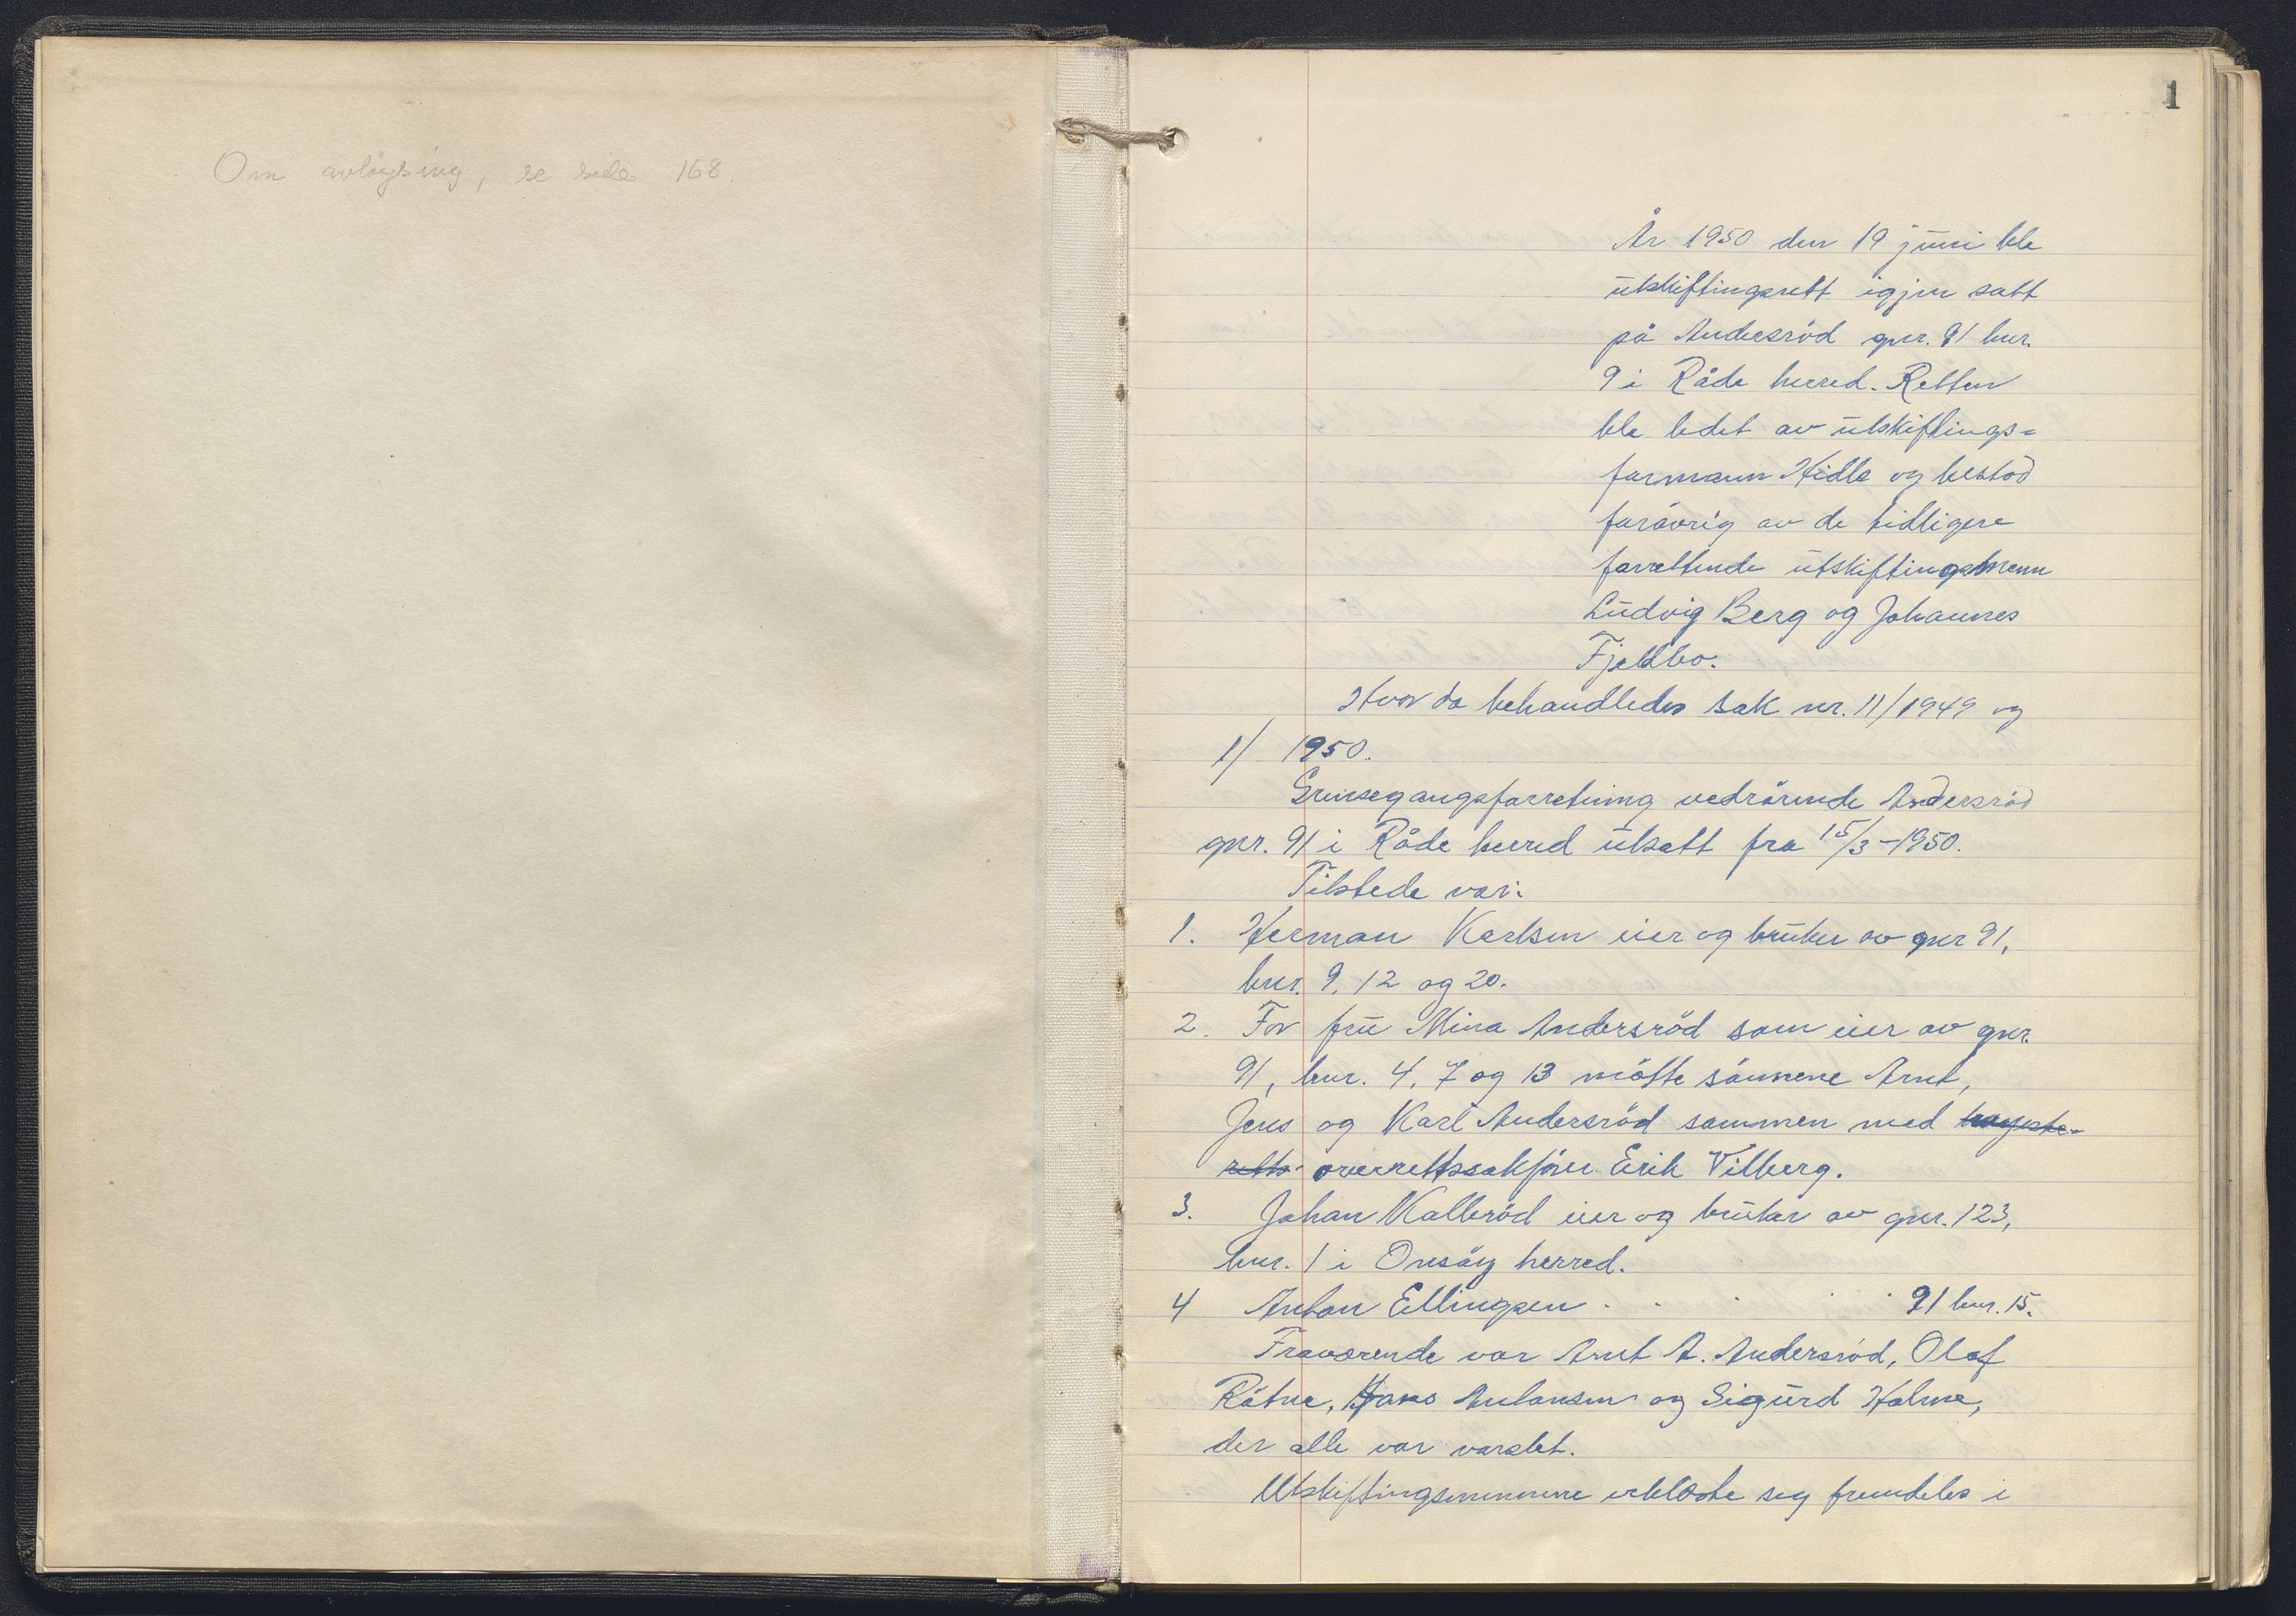 Om avløysing, se side 168.
1
År 1950 den 19 juni ble
utskiftingsrett igjen satt
på Andersrød gnr. 91 bnr.
9 i Råde herred. Retten
ble ledet av utskiftings=
formann Hidle og bestod
forøvrig av de tidligere
forrettende utskiftingsmenn
Ludvig Berg og Johannes
Fjeldbo.
Hvor da behandledes sak nr. 11/1949 og
1/ 1950.
Grensegangsforretning vedrörende Andersröd
gnr. 91 i Råde herred utsatt fra 15/3-1950.
Tilstede var:
1. Herman Karlsen eier og bruker av gnr 91,
bnr. 9, 12 og 20.
2. For fru Mina Andersröd som eier av gnr.
91, bnr. 4, 7 og 13 mötte sönnene Arnt,
Jens og Karl Andersröd sammen med høyeste-
retts- overrettssakförer Erik Vilberg.
3. Johan Kalleröd eier og bruker av gnr. 123,
bnr. 1 i Onsöy herred.
4 Anton Ellingsen - - - - - 91 bnr. 15.
Fraværende var Arnt A. Andersröd, Olaf
Råtne, Hans Antonsen og Sigurd Holme,
der alle var varslet.
Utskiftingsmennene erklærte seg fremdeles i